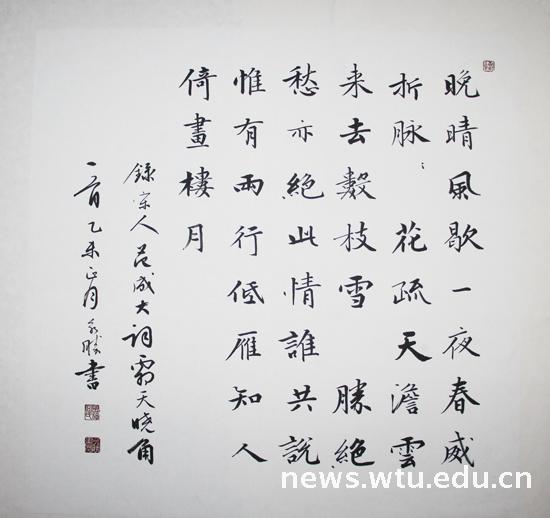 晚晴風歇一夜春威
折脉〻 花疏天澹雲
来去數枝雪 勝絕
愁亦絕此情誰共說
惟有兩行低雁知人
倚畫樓月
録宋人范成大词霜天晓角
一首乙未正月書
news.wtu.edu.cn